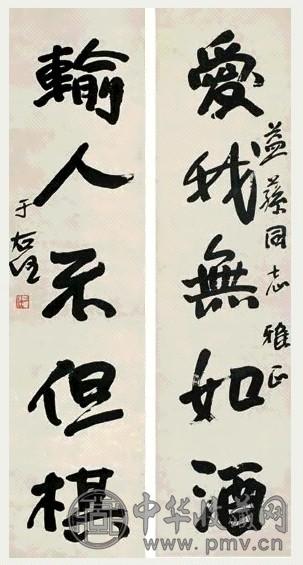 愛我無如酒
益蓀同志雅正
輸人不但棋
于右任
中华收藏网
www.pmv.cn